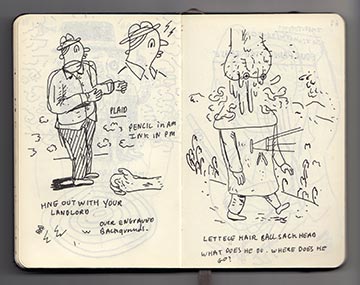 PLAID
PENCIL in AM
INK IN PM
HNG OUT WITH YOUR
LANDLORD
OVER ENGRAVED
BACKGROUNDS.
LETTECE HAIR BALLSACK HEAD
WHAT DOES HE DO. WHERE DOES HE
GO?